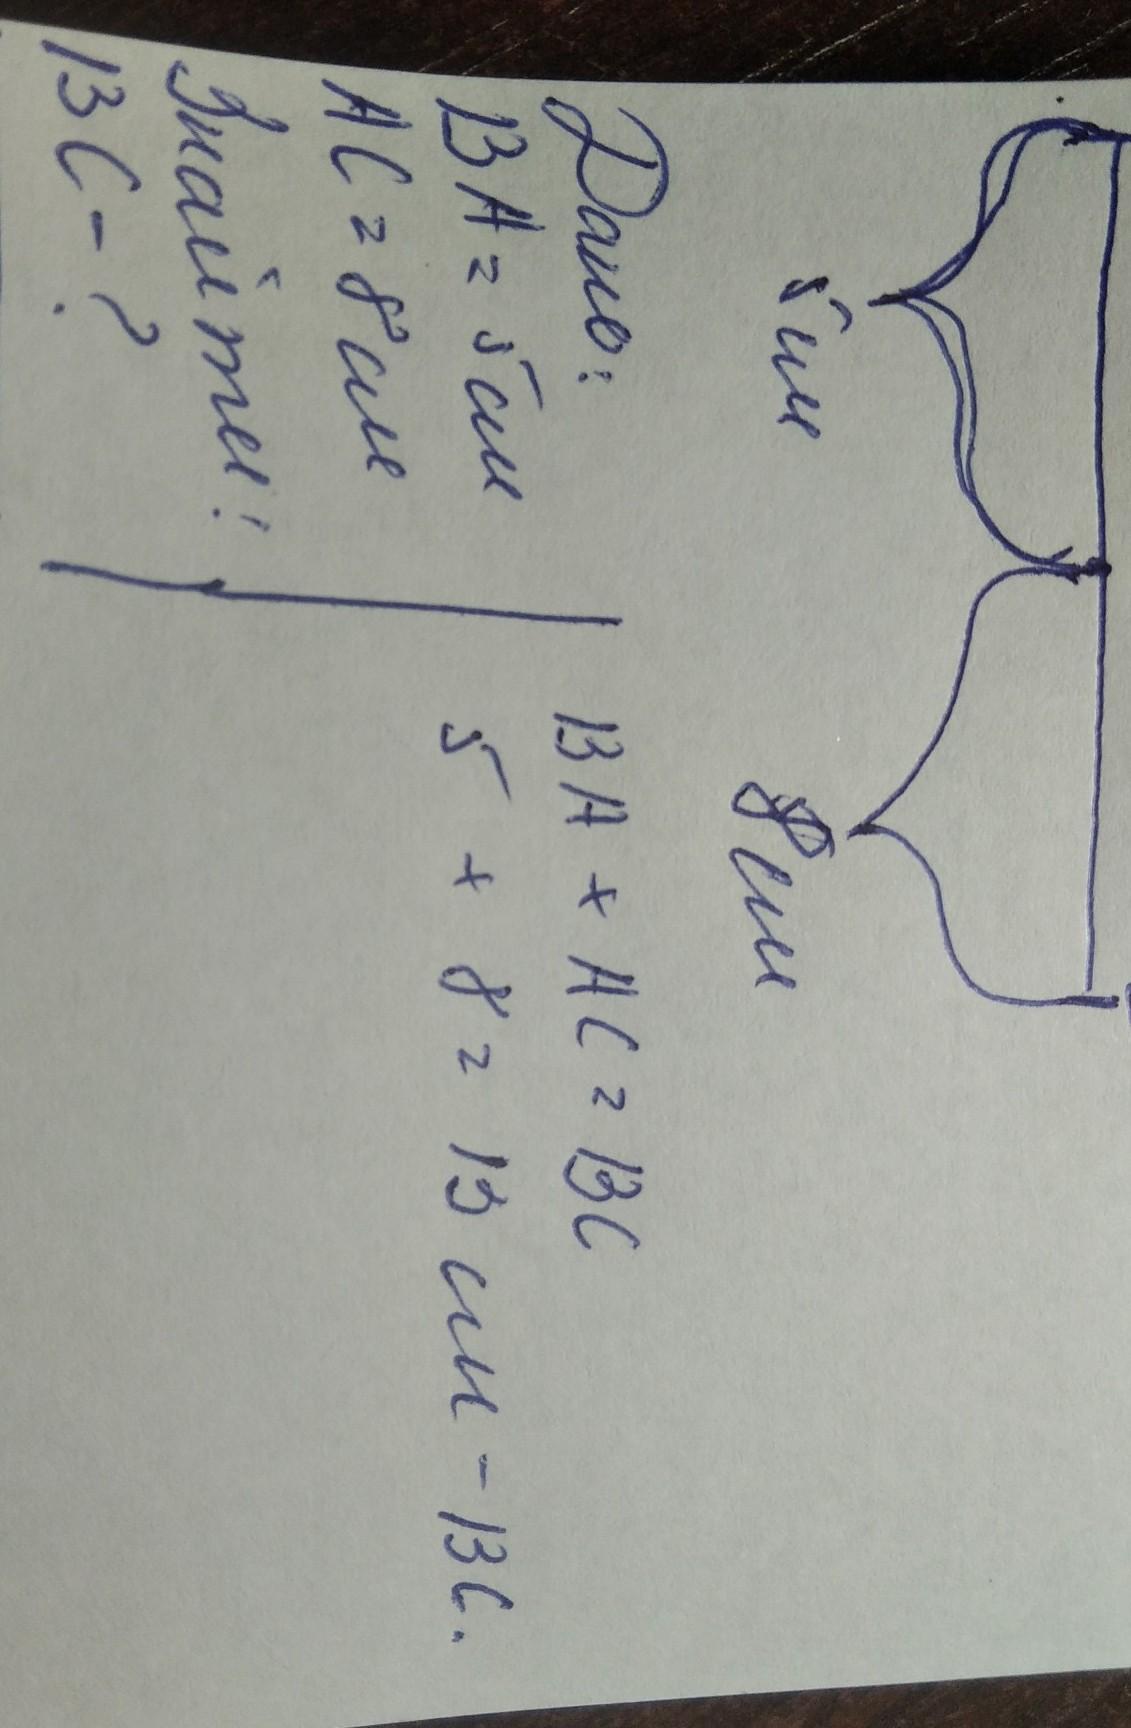 5см 8см
Дано:
BA = 5см
AC = 8см
Знайти:
BC - ?
BA + AC = BC
5 + 8 = 13 см - BC.